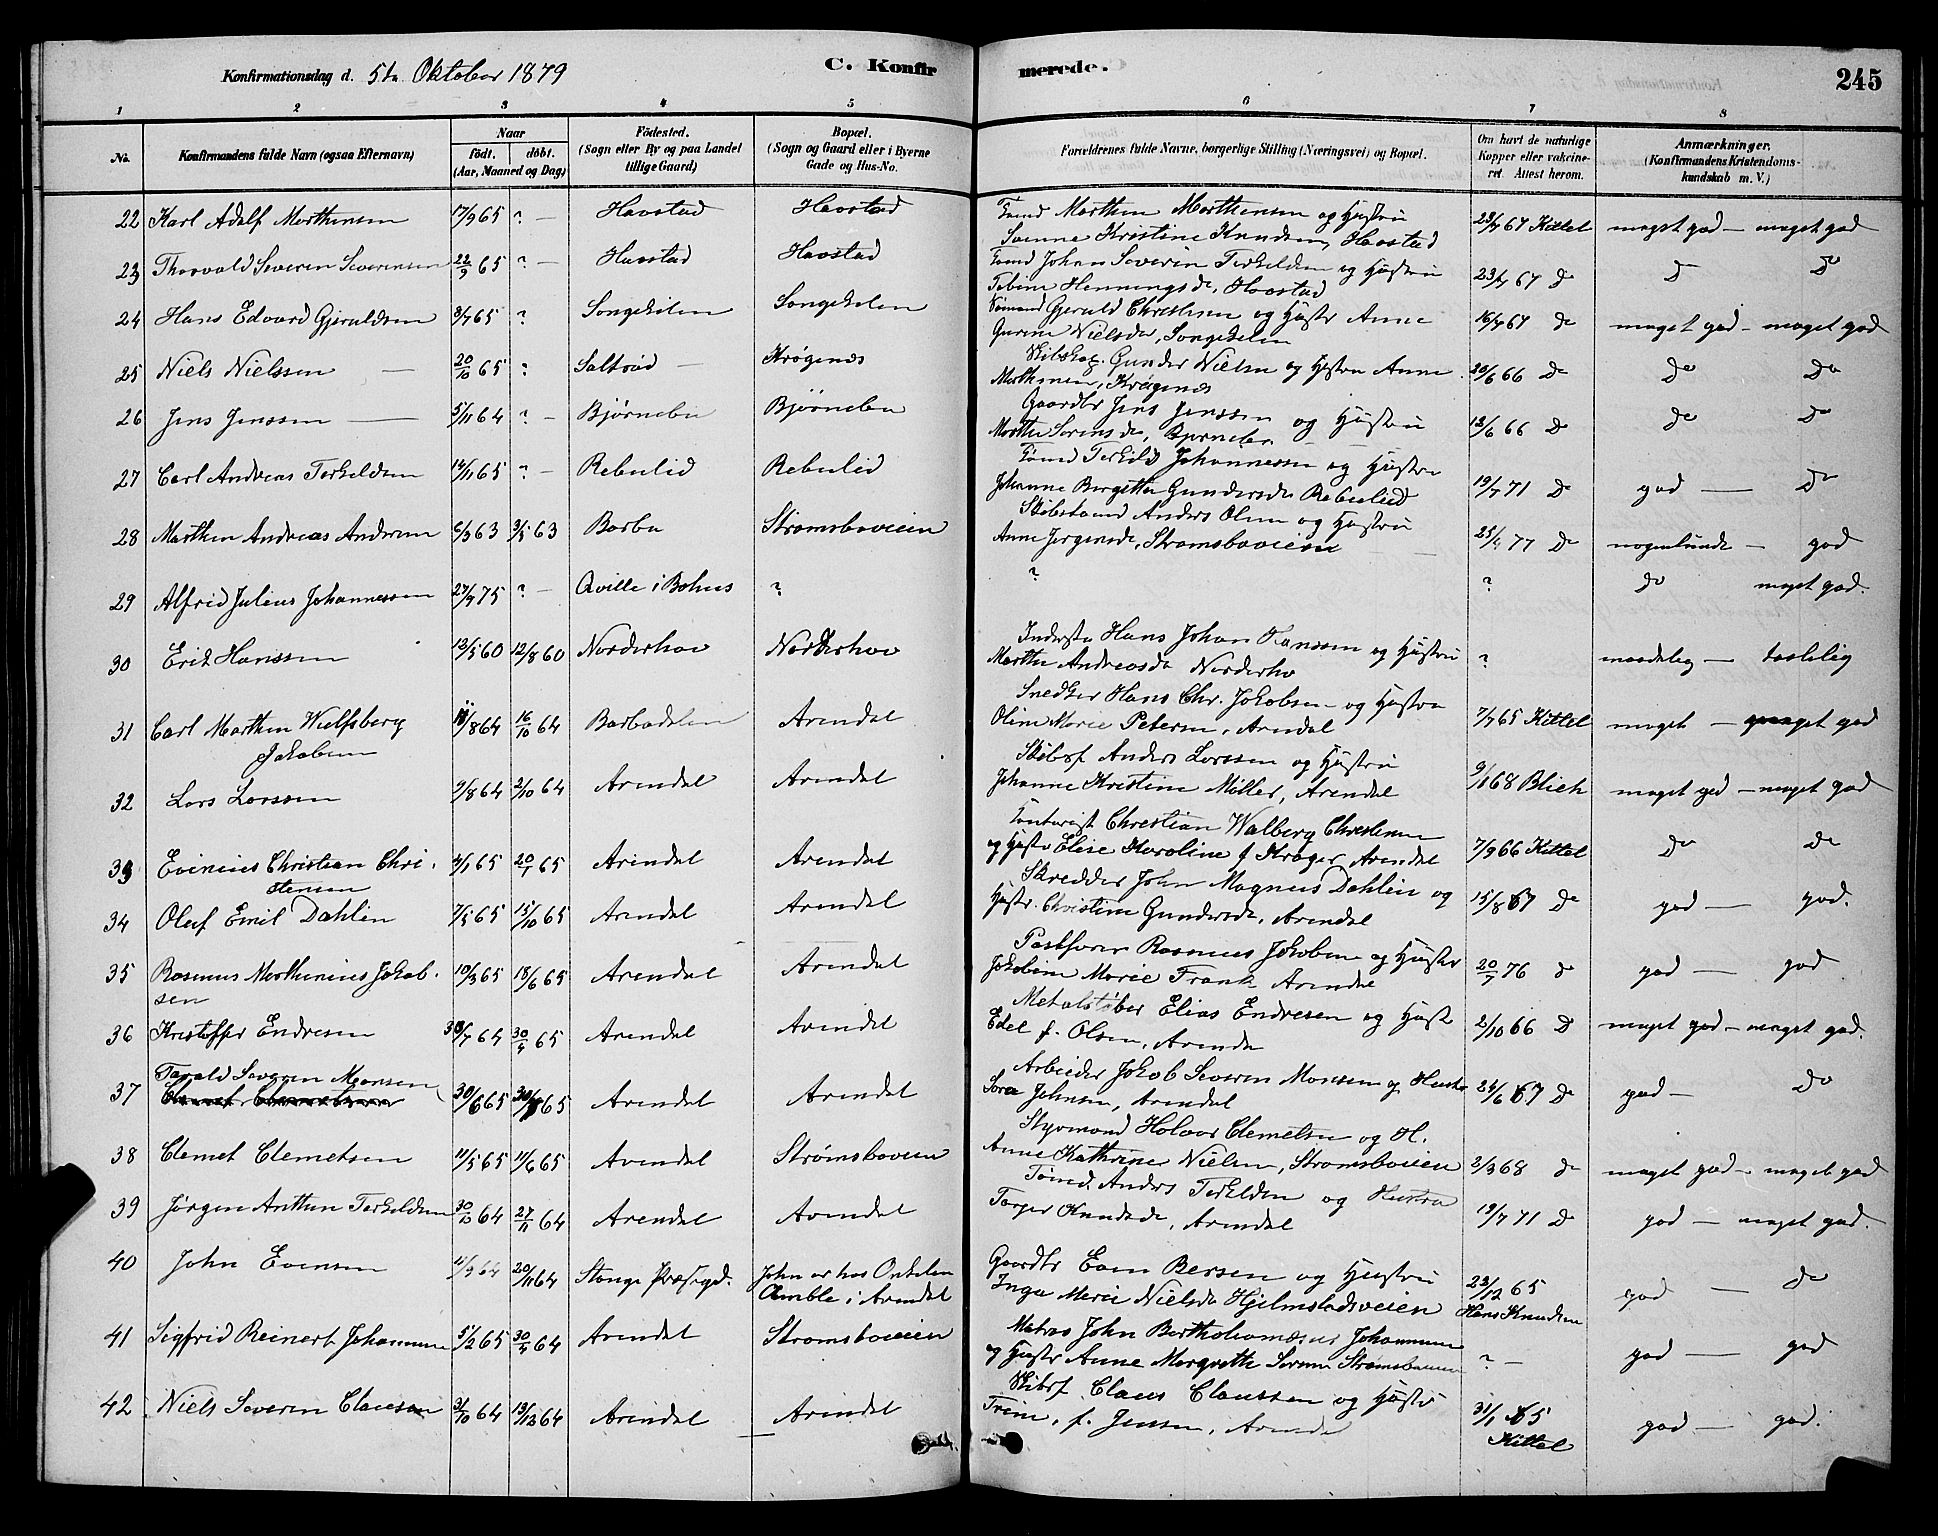 Konfirmationsdag d. 5te Oktober 1879 C. Konfirmerede. 245
1 2 3 4 5 6 7 8
No. Konfirmandens fulde Navn (ogsaa Efternavn) Naar födt. döbt. (Aar, Maaned og Dag) Födested. (Sogn eller By og paa Landet tillige Gaard) Bopæl. (Sogn og Gaard eller i Byerne Gade og Hus-No. Forældrenes fulde Navne, borgerlige Stilling (Næringsvei) og Bopæl. Om havt de naturlige Kopper eller vakcineret. Attest herom. Anmærkninger. (Konfirmandens Kristendomskundskab m. V.)
22 Karl Adolf Morthensen 17/9 65 ? — Havstad Havstad Tømd Morthen Morthensen og Hustru
Kristine Knudsen, Havstad 23/7 67 Kittel meget god — meget god
23 Thorvald Severin Severinsen 22/9 65 ? — Havstad Havstad Tømd Johan Severin Terkeldsen og Hustru
Tobine Henningsdr, Havstad 23/7 67 Do Do Do
24 Hans Edvard Gjeruldsen 3/7 65 ? Songekilen Songekilen Sømand Gjeruld Christensen og Hustr Anne
Gurine Nielsdr, Songekilen 16/7 67 do meget god — meget god
25 Niels Nielssen — 20/10 65 ? Saltrød — Krøgenæs Skibskap. Gunder Nielsen og Hustru Anne
Morthensen, Krøgenæs 20/6 66 Do Do Do
26 Jens Jenssen — 5/11 64 ? — Bjørnebu Bjørnebu Gaardbr Jens Jenssen og Hustru
Marthe Sørensdr, Bjørnebu 12/6 66 Do Do Do
27 Carl Andreas Terkeldsen 12/11 65 ? — Rebulid Rebulid Tømd Terkild Johannessen og Hustru
Johanne Birgitte Gundersdr Rebulid 19/7 71 Do god — Do
28 Morthen Andreas Andersen 6/3 63 3/5 63 Barbu Strømsboveien Anders Olsen og Hustru
Anne Jørgensdr, Strømsboveien 77 Do nogenlunde — god
29 Alfrid Julius Johannessen 27/9 75 ? — Qville i Bohus ? ? ? do meget god.
30 Erik Hanssen 12/5 60 12/8 60 Norderhov Norderhov Inderste Hans Johan Hanssen og Hustru
Marthe Andreasdr Norderho ? maadelig — taalelig
31 Carl Morthen Wulfsberg 8 64 16/10 64 Barbudalen Arendal Snedker Hans Chr. Jakobsen og Hustru
Jakobsen Oline Marie Petersen, Arendal 7/7 65 Kittel meget — meget god
32 Lars Larssen 9/8 64 2/10 64 Arendal Arendal Skibsf. Anders Larssen og Hustru
Johanne Kristine Møller, Arendal 9/1 68 Blich meget god — meget god
33 Evinius Christian Chri- 4/1 65 20/1 65 Arendal Arendal Kontorist Christian Walberg Christensen
stensen og Hustr Elise Karoline f Krøger Arendal 7/9 66 Kittel Do Do
34 Oluf Emil Dahlin 7/5 65 15/10 65 Arendal Arendal Skredder John Magnus Dahlin og
Hustr. Christine Gundersdr, Arendal 15/8 67 Do god — god.
35 Rasmus Morthenius Jakob- 10/3 65 18/6 65 Arendal Arendal Postfører Rasmus Jakobsen og Hustru
sen Jakobine Marie Frank Arendal 20/7 76 do god — god
36 Kristoffer Endresen 30/7 64 30/4 65 Arendal Arendal Metalstøber Elias Endresen og Hust
Edel f. Olsen, Arendal 2/10 66 D meget god — meget god.
37 Tarald Severin Monsen 30/6 65 65 Arendal Arendal Arbeider Jakob Severin Monsen og Hustr
Sara Johnsen, Arendal 24/6 67 Do god — Do
38 Clemet Clemetsen 11/5 65 11/6 65 Arendal Strømsboveien Styrmand Halvor Clemetsen og H.
Anne Kathrine Nielsen, Strømsboveien 2/3 68 do meget god — meget god
39 Jørgen Anthon Terkeldsen 30/10 64 27/11 64 Arendal Arendal Tømd. Anders Terkeldsen og Hustru
Torjer Knudsdr, Arendal 19/7 71 Do god — meget god.
40 John Evensen 11/9 64 20/11 64 Stange Præstegd. John er hos Onkelen Gaardbr Even Bersen og Hustru
Amble i Arendal Inger Marie Nielsdr Hjelmstadsveien 23/12 65 god — do
Hans Knudsen
41 Sigfrid Reinert Johannesen 5/2 65 30/4 64 Arendal Strømsboveien Matros John Bartholomæus Johannesen
og Hustr Anne Margrethe Strømsboveien ? — god — god
42 Niels Severin Claussen 31/10 64 13/12 64 Arendal Arendal Skibsf Claus Claussen og Hustr
Trine, f. Jenssen, Arendal 31/1 65 god — god.
Kittel